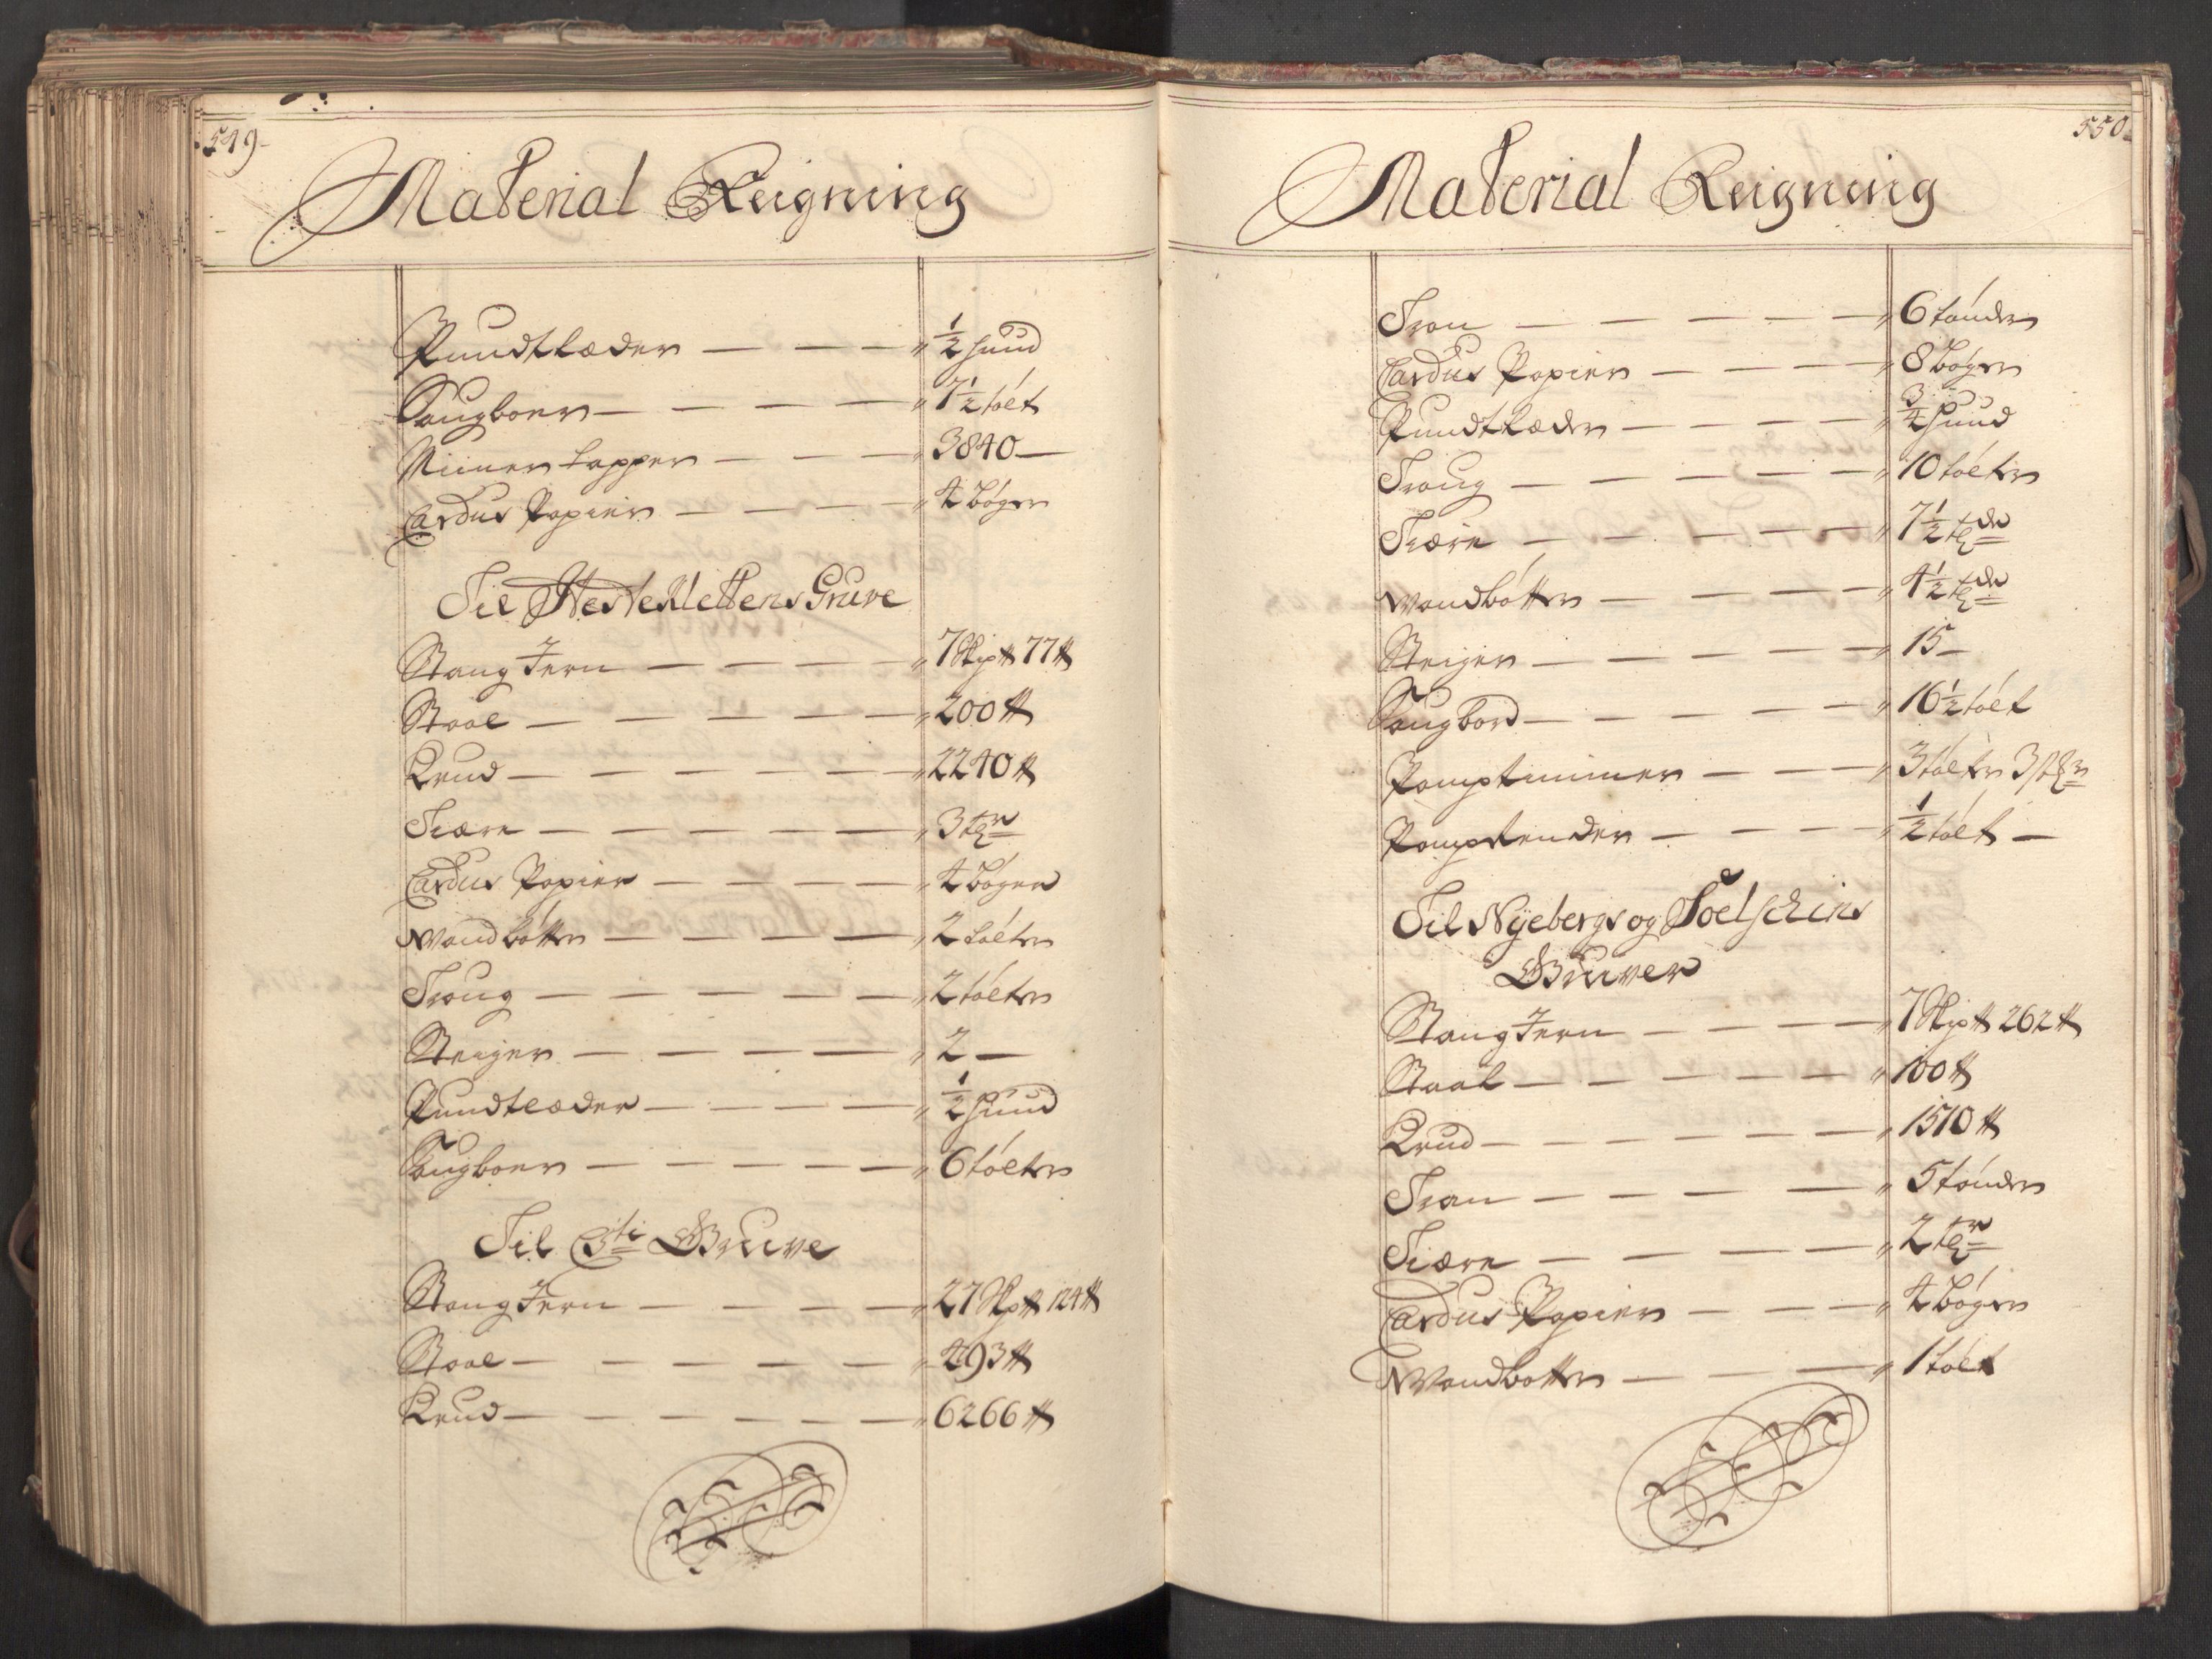 549.
Material Reigning
Pundtlæder — — — „ ½ huud
Saugboer — — — — „ 7½ tólt
Miiner Lapper — — — „ 3840 —
Cardus Papier — — — „ 4 bøger
Til Hesteklettens Gruve
Stang Jern — — — — „ 7 Skip℔ 77 ℔
Staal — — — — — „ 200 ℔
Krud — — — — — „ 2240 ℔
Tiære — — — — — „ 3 tr
Cardus Papier — — — — „ 4 bøger
Wandbøtter — — — — „ 2 tólter
Troug — — — — — „ 2 tólter
Steiger — — — — „ 2 —
Pundtlæder — — — — „ ½ huud
Saugboer — — — — „ 6 tólter
Til Gruve
Stang Jern — — — — „ 27 Skp℔ 124 ℔
Staal — — — — — „ 493 ℔
Krud — — — — — „ 6266 ℔
550.
Material Reigning
Tran — — — — — „ 6 tønder
Cardus Papier — — — „ 8 bøger
Pundtlæder — — — — „ ¾ huud
Troug — — — — — „ 10 tólter
Tiære — — — — — „ 7½ tdr
Wandbøtter — — — — „ 4½ tdr
Steiger — — — — — „ 15 —
Saugbord — — — — — „ 16½ tólt
Pomptimmer — — — „ 3 tólter 3 stkr
Pompkender — — — — „ ½ tólt —
Til Nyebergs og Soelschins
Gruver
Stang Jern — — — — „ 7 Skip℔ 262 ℔
Staal — — — — — „ 100 ℔
Krud — — — — — „ 1510 ℔
Tran — — — — „ 5 tønder
Tiære — — — — „ 2 tr
Cardus Papier — — — „ 4 bøger
Wandbøtter — — — „ 1 tólt